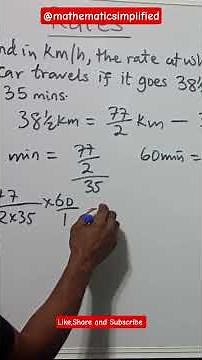 @mathematicsimplified
Rates
nd in Km/h, the rate at wh
car travels if it goes 38½
35 mins.
38½km = 77/2 Km -
min = 77/2/35 60min =
77/2×35 × 60/1 =
Like,Share and Subscribe